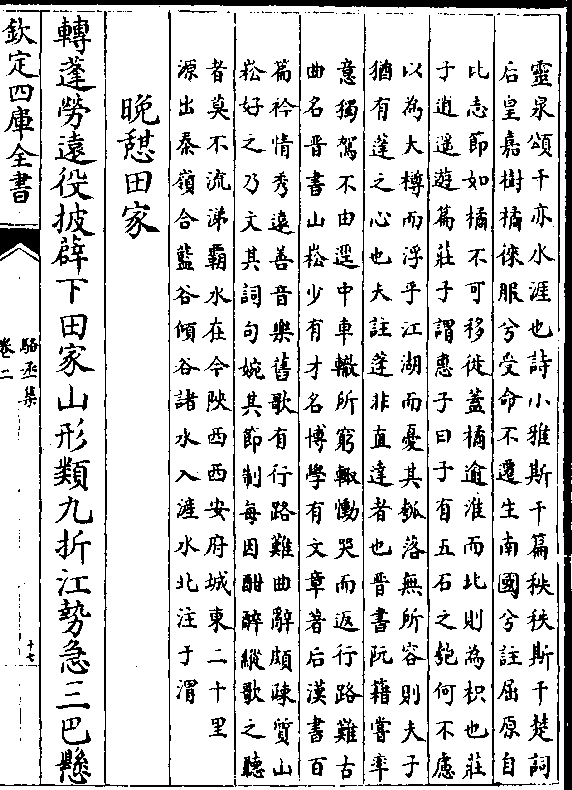 靈泉頌干亦水涯也詩小雅斯干篇秩秩斯干楚詞
后皇嘉樹橘徠服兮受命不遷生南國兮註屈原自
比志節如橘不可移徙蓋橘逾淮而北則為枳也莊
子逍遥遊篇莊子謂惠子曰子有五石之匏何不慮
以為大樽而浮乎江湖而憂其瓠落無所容則夫子
猶有蓬之心也夫註蓬非直達者也晉書阮籍嘗率
意獨駕不由逕中車轍所窮輙慟哭而返行路難古
曲名晉書山崧少有才名博學有文章著后漢書百
篇衿情秀逺善音樂舊歌有行路難曲辭頗疎質山
崧好之乃文其詞句婉其節制每因酣醉縱歌之聽
者莫不流涕霸水在今陜西西安府城東二十里
源出秦嶺合藍谷傾谷諸水入滻水北注于渭
晚憇田家
轉蓬勞遠役披辟下田家山形類九折江勢急三巴懸
欽定四庫全書
駱丞集
卷二
十七